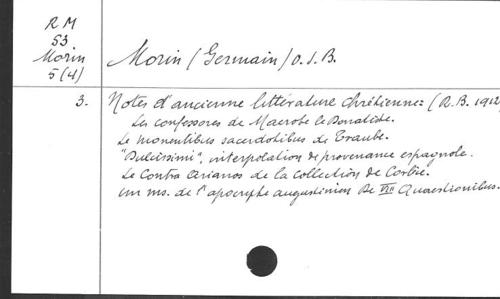 RM
53
Morin
5(4)
Morin (Germain) O.S.B.
3. Notes d'ancienne littérature chrétienne: (R.B. 1912
Les confessores de Macrobe le Donatiste.
Le monentibus sacerdotibus de Traube.
"Dulcissimi", interpolation de provenance espagnole.
Le Contra Arianos de la collection de Corbie.
un ms. de l'apocryphe augustinien De VIII Quaestionibus.